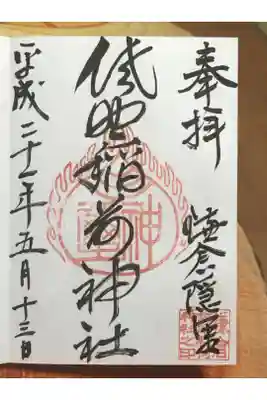 奉拝
鎌倉隠里
佐助稲荷神社
平成二十一年五月十三日